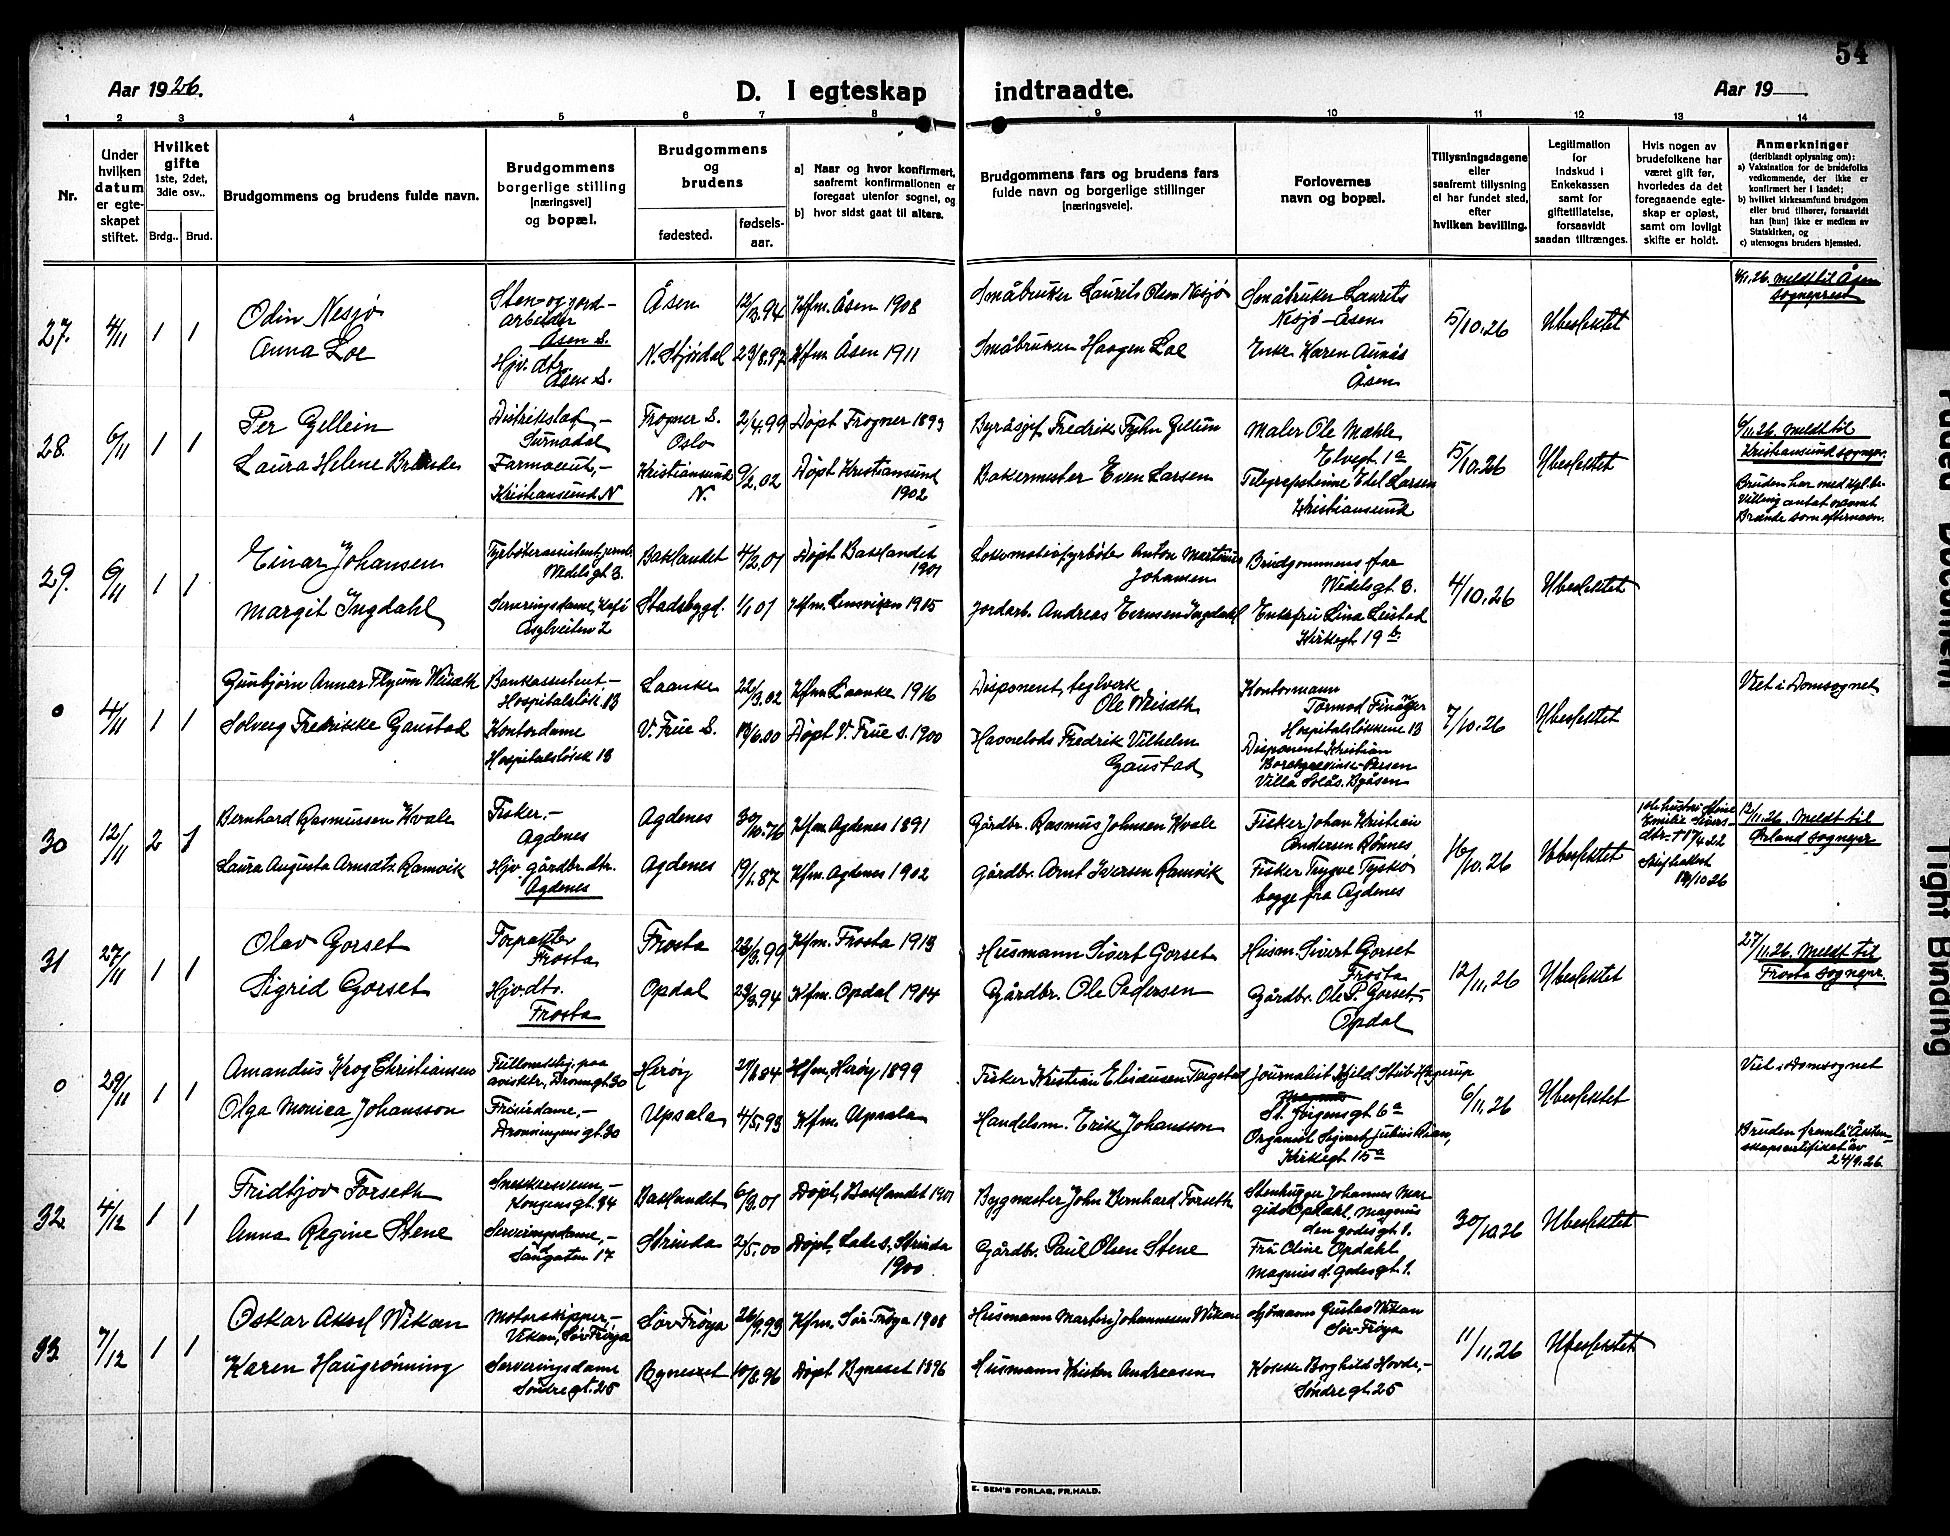 54
Aar 1926.
D. I egteskap indtraadte.
Aar 19
1 2 3 4 5 6 7 8 9 10 11 12 13 14
Nr.
Under
hvilken
datum
er egte-
skapet
stiftet.
Hvilket
gifte
1ste, 2det,
3die osv..
Brdg..
Brud.
Brudgommens og brudens fulde navn.
Brudgommens
borgerlige stilling
[næringsvei]
og bopæl.
Brudgommens
og
brudens
fødested.
fødsels-
aar.
a) Naar og hvor konfirmert,
saafremt konfirmationen er
foregaat utenfor sognet, og
b) hvor sidst gaat til alters.
Brudgommens fars og brudens fars
fulde navn og borgerlige stillinger
[næringsveie].
Forlovernes
navn og bopæl.
Tillysningsdagene
eller
saafremt tillysning
ei har fundet sted,
efter
hvilken bevilling.
Legitimation
for
indskud i
Enkekassen
samt for
giftetillatelse,
forsaavidt
saadan tiltrænges.
Hvis nogen av
brudefolkene har
været gift før,
hvorledes da det
foregaaende egte-
skap er opløst,
samt om lovligt
skifte er holdt.
Anmerkninger
(deriblandt oplysning om):
a) Vaksination for de brudefolks
vedkommende, der ikke er
konfirmert her i landet;
b) hvilket kirkesamfund brudgom
eller brud tilhører, forsaavidt
han [hun] ikke er medlem av
Statskirken, og
c) utensogns bruders hjemsted.
27. 4/11 1 1
Odin Nesjø
Anna Loe
Sten- og jord-
arbeider
Åsen S.
Hjv. dtr.
Åsen S.
Åsen 12/3.94 Kfm. Åsen 1908
N. Stjørdal 29/8.97 Kfm. Åsen 1911
Småbruker Laurits Olsen Nesjø
Småbruker Haagen Loe
Småbruker Laurits
Nesjø - Åsen
Enke Karen Aunås
Åsen
5/10.26 Ubesfektet
4/11.26. meldt til Åsen
sogneprest
28. 6/11 1 1
Per Gellein
Laura Helene Brænde
Distriktslæg, -
Surnadal
Farmaceut, -
Kristiansund N
Frogner S.
Oslo
2/4.99 Døpt Frogner 1899
Kristiansund
N.
9/2.02 Døpt Kristiansund
1902
Byråsjef Fredrik Tyhn Gellein
Bakermester Even Larsen
Maler Ole Mæhle
Elvegt. 1a
Telegrafistinne Edel Larsen
Kristiansund
5/10.26 Ubesfektet
6/11.26. meldt til
Kristiansund sognepr.
Bruden har med kgl. be-
villing antat navnet
Brænde som efternavn.
29. 6/11 1 1
Einar Johansen
Margit Ingdahl
Fyrbøterassistent jernb.
Wedelsgt. 3.
Serveringsdame, Kafé
Asylveiten 2
Baklandet 4/2.01 Døpt Baklandet
1901
Stadsbygd. 1/1 01 Kfm. Lensviken 1915
Lokomotivfyrbøter Anton Martinus
Johansen
Jordarb. Andreas Ternsen Ingdahl
Brudgommens far
Wedelsgt. 3.
Enkefru Lina Leistad
Kirkegt. 19 b.
4/10.26 Ubesfektet
0 4/11 1 1
Gunbjørn Annar Flyum Weisæth
Solveig Fredrikke Gaustad
Bankassistent -
Hospitalsløk. 13
Kontordame
Hospitalsløkk 13
Laanke 22/3.02 Kfm Laanke 1916
V. Frue S. 13/6.00 Døpt V. Frue s. 1900
Disponent, teglverk
Ole Weisæth
Havnelods Fredrik Vilhelm
Gaustad
Kontormann
Tormod Finanger
Hospitalsløkkene 13
Disponent Kristian
Borchgrevinck-Persen
Villa Solås. Byåsen
7/10.26 Ubesfektet
Viet i Domsognet
30 12/11 2 1
Bernhard Rasmussen Kvale
Laura Augusta Arnsdtr. Ramvik
Fisker, -
Agdenes
Hjv. gårdbr. dtr.
Agdenes
Agdenes 30/10.76 Kfm Agdenes 1891
Agdenes 19/1.87 Kfm. Agdenes 1902
Gårdbr. Rasmus Johnsen Kvale
Gårdbr. Arnt Iversen Ramvik
Fisker Johan Kristian
Andersen Rønnes
Fisker Trygve Tyskø
begge fra Agdenes
16/10.26 Ubesfektet
1ste hustru Stine
Emilie Sivers-
dtr. † 17/4 22
Skifteattest
13/10 26
12/11.26. Meldt til
Ørland sognepr.
31 27/11 1 1
Olav Gorset
Sigrid Gorset
Forpakter
Frosta
Hjv. dtr.
Frosta
Frosta 22/3.99 Kfm. Frosta 1913
Opdal 29/3.94 Kfm. Opdal 1914
Husmann Sivert Gorset
Gårdbr. Ole Pedersen
Husm. Sivert Gorset
Frosta
Gårdbr. Ole P. Gorset -
Opdal
12/11.26 Ubesfektet
27/11.26. Meldt til
Frosta sognepr.
0 29/11 1 1
Amandus Krog Christiansen
Olga Monica Johansson
Dronngt. 30
Frisørdame, -
Dronningensgt. 30
Herøy 84 Kfm, Herøy 1899
Upsala 4/5.93 Kfm. Upsala
Fisker Kristian Eliasusen Teigstad
Handelsm. Erik Johansson
Journalist Kjeld Stub Hagerup
St. Jørgensgt. 6a
Organist Sigvart Julius Riian,
Kirkegt 15a
6/11.26 Ubesfektet
Viet i Domsognet
Bruden freml. Äkten-
skapscertifikat av
24/9.26.
32. 4/12 1 1
Fridtjov Forseth
Anna Regine Stene
Snekkersvenn, -
Kongensgt. 94
Serveringsdame, -
Sangaten 17
Baklandet 6/3.01 Døpt, Baklandet 1901
Strinda 2/5.00 Døpt, Lade s. Strinda
1900
Bygmester John Bernhard Forseth
Gårdbr. Paul Olsen Stene
Stenhugger Johannes Mar-
gido Opdahl, Magnus
den godes gt. 1.
Fru Oline Opdahl
Magnus d. Godes gt. 1.
30/10 26 Ubesfektet
33. 7/12 1 1
Oskar Aksel Wikan
Karen Haugrønning
Motorskipper, -
Vikan, Sør-Frøya
Serveringsdame
Søndregt. 25
Sør-Frøya 26/9.93 Kfm. Sør-Frøya 1908
Byneset 10/8.96 Døpt Byneset 1896
Husmann Martin Johannesen Wikan
Husmann Kristen Andreasen
Sjømann Gustav Wikan
Sør-Frøya
Kokke Borghild Hovde, -
Søndregt. 25
11/11.26 Ubesfektet
E. SEM'S FORLAG, FR.HALD.
Faded Document
Tight Binding